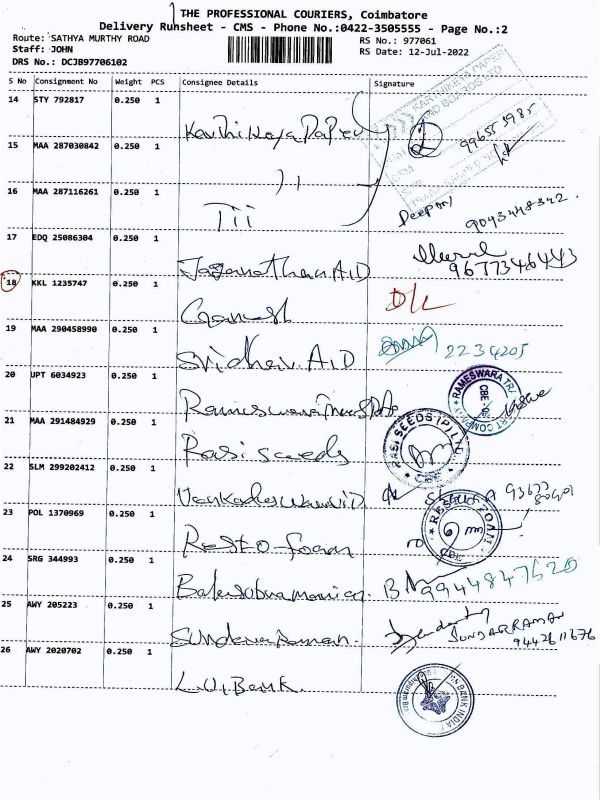 THE PROFESSIONAL COURIERS, Coimbatore
Delivery Runsheet - CMS - Phone No.:0422-3505555 - Page No.:2
Route: SATHYA MURTHY ROAD RS No.: 977061
Staff: JOHN RS Date: 12-Jul-2022
DRS No.: DCJB97706102
S No Consignment No Weight PCS Consignee Details Signature
14 STY 792817 0.250 1 Karthikeya Paper
15 MAA 287030842 0.250 1 ))
16 MAA 287116261 0.250 1 Tii 9043448342
17 EDQ 25086304 0.250 1 Jaganathan A1D 9677346443
18 KKL 1235747 0.250 1 Ganesh D/L
19 MAA 290458990 0.250 1 Sridhar A1D 2234205
20 UPT 6034923 0.250 1 Rameswara RAMESWARA CBE
21 MAA 291484929 0.250 1 Rasi seeds RASI SEEDS (P) LTD. CBE
22 SLM 299202412 0.250 1
23 POL 1370969 0.250 1 Resto foam
24 SRG 344993 0.250 1 Balasubramanian B. 9944847620
25 AWY 205223 0.250 1 Sundararaman. SUNDARRAMAN
9442611676
26 AWY 2020702 0.250 1 L.V.Bank. BANK INDIA